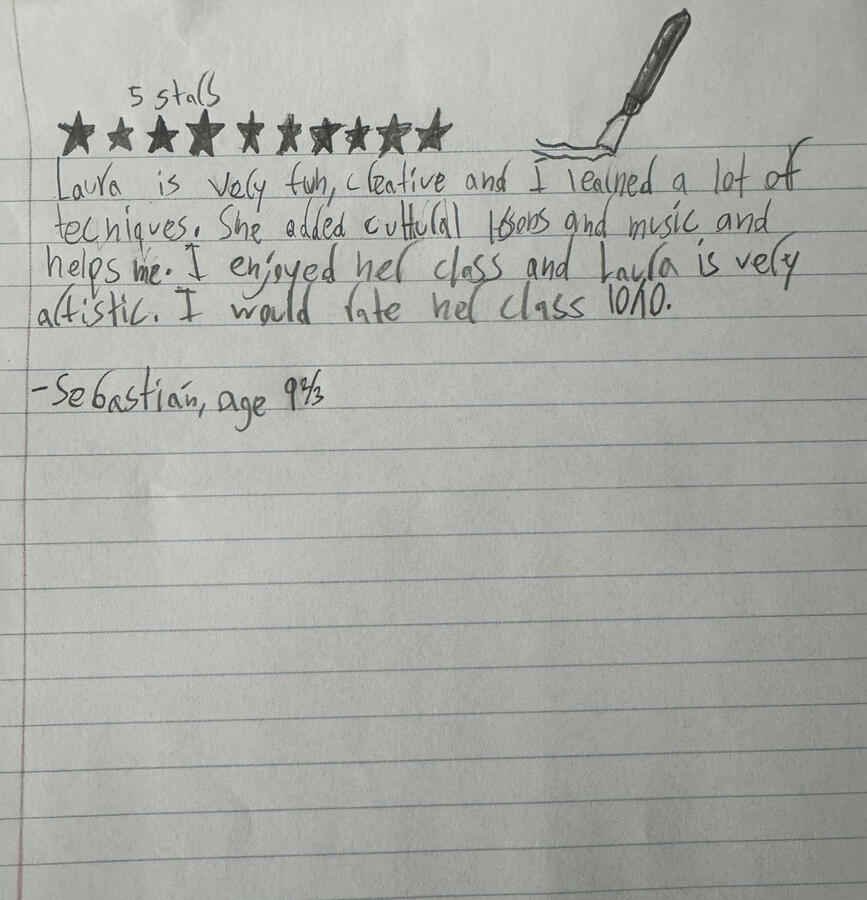 5 stars
Laura is very fun, creative and I learned a lot of
tecniques. She added cultural lesons and music and
helps me. I enjoyed her class and Laura is very
artistic. I would rate her class 10/10.
-Sebastián, age 9 2/3